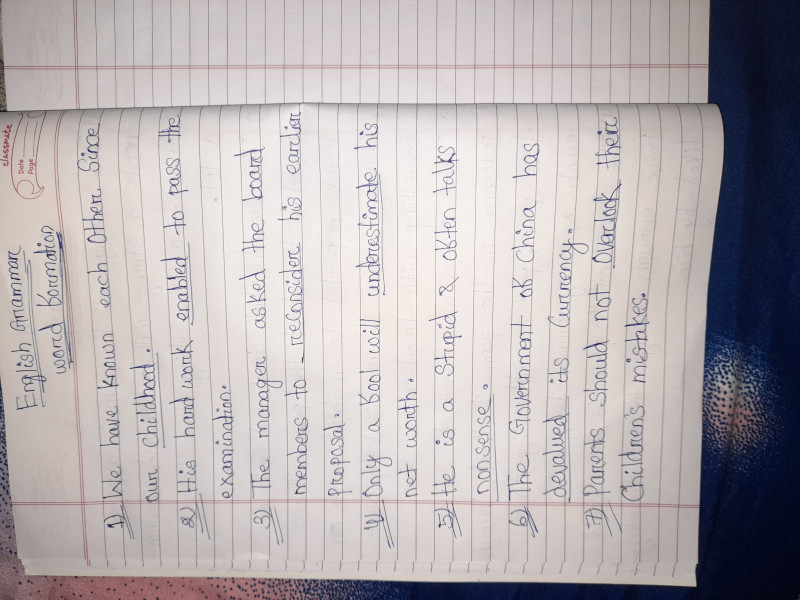 classmate
Date
Page
English Grammar
word formation
1) We have known each other since
our childhood.
2) His hard work enabled to pass the
examination.
3) The manager asked the board
members to reconsider his earlier
proposal.
4) Only a fool will underestimate his
net worth.
5) He is a Stupid & often talks
nonsense.
6) The Government of China has
devalued its Currency.
7) Parents should not Overlook their
Children's mistakes.